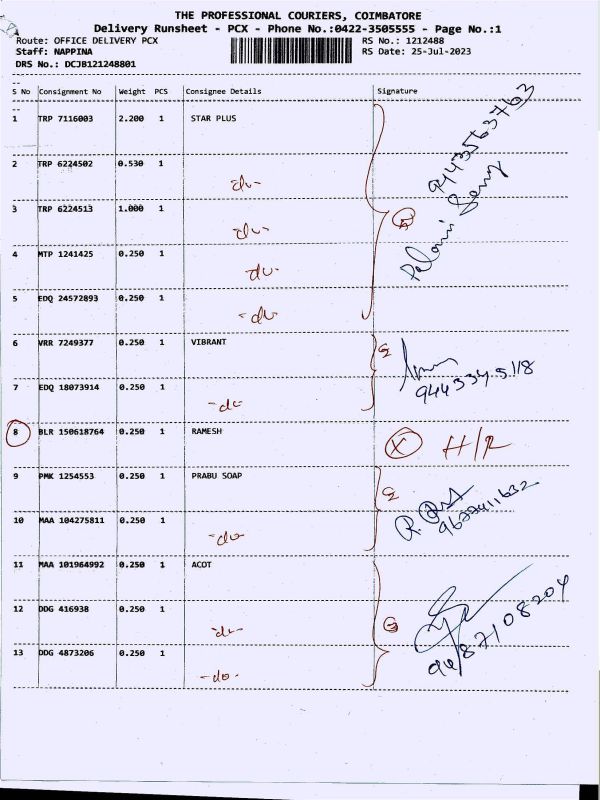 THE PROFESSIONAL COURIERS, COIMBATORE
Delivery Runsheet - PCX - Phone No.:0422-3505555 - Page No.:1
Route: OFFICE DELIVERY PCX RS No.: 1212488
Staff: NAPPINA RS Date: 25-Jul-2023
DRS No.: DCJB121248801
S No Consignment No Weight PCS Consignee Details Signature
1 TRP 7116003 2.200 1 STAR PLUS 9443563763
2 TRP 6224502 0.530 1 -do-
3 TRP 6224513 1.000 1 -do- 5
4 MTP 1241425 0.250 1 -do- Palani
5 EDQ 24572893 0.250 1 -do-
6 VRR 7249377 0.250 1 VIBRANT 2
7 EDQ 18073914 0.250 1 -do- 9443345118
8 BLR 150618764 0.250 1 RAMESH X H/R
9 PMK 1254553 0.250 1 PRABU SOAP 2
10 MAA 104275811 0.250 1 -do- 9677411632
11 MAA 101964992 0.250 1 ACOT
12 DDG 416938 0.250 1 -do- 3
13 DDG 4873206 0.250 1 -do- 9487108204